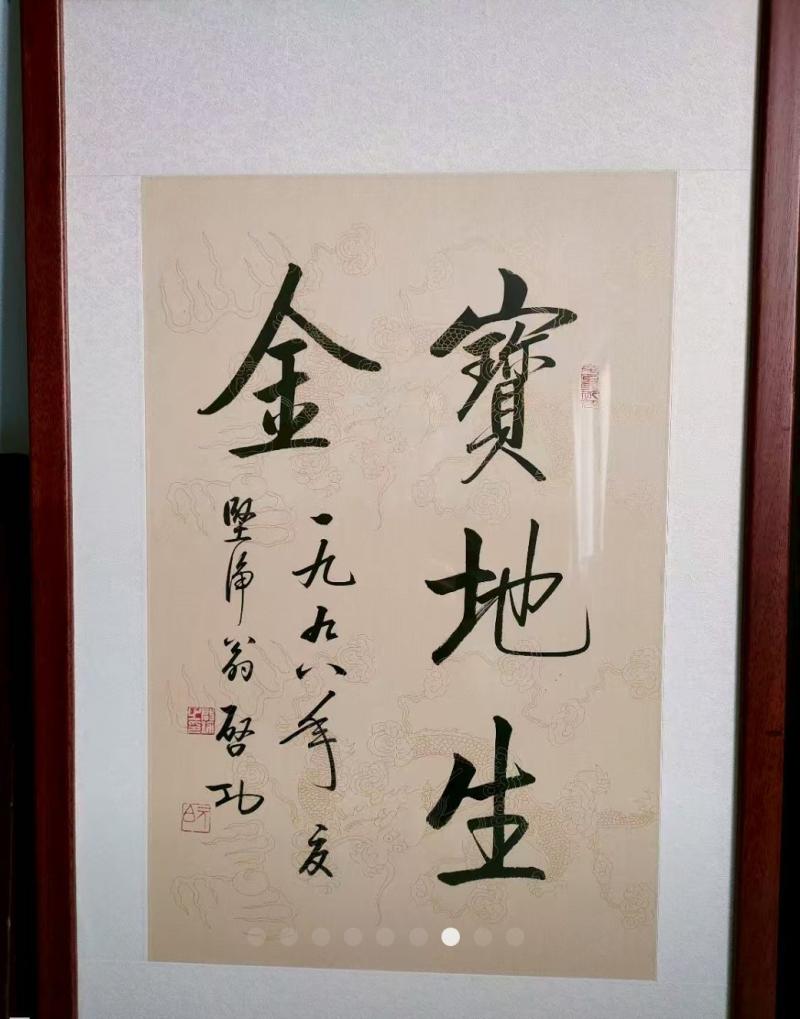 寶地生
金
一九九八年夏
堅淨翁啓功